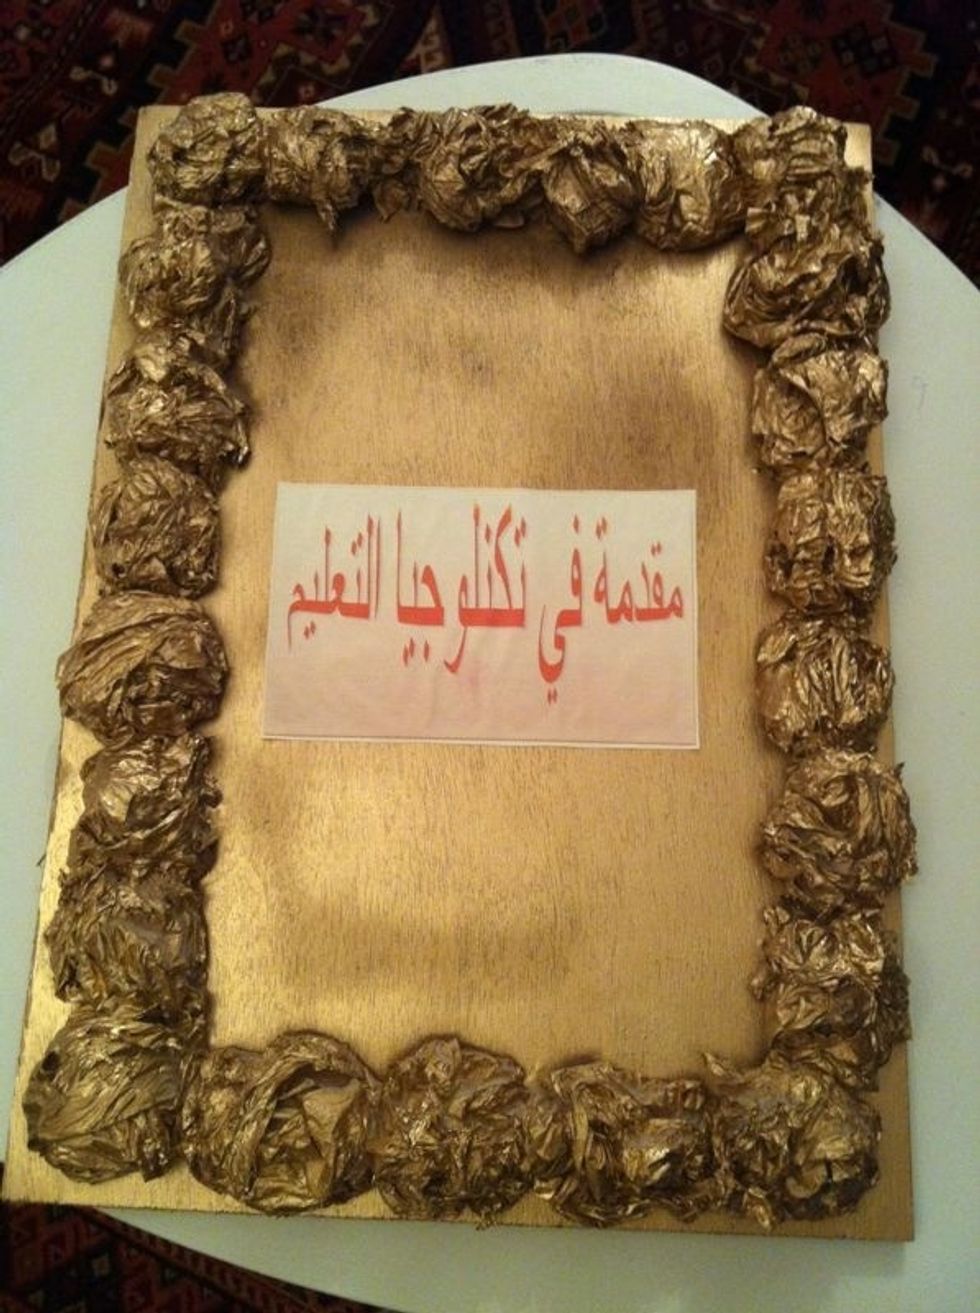 مقدمة في تكنلوجيا التعليم